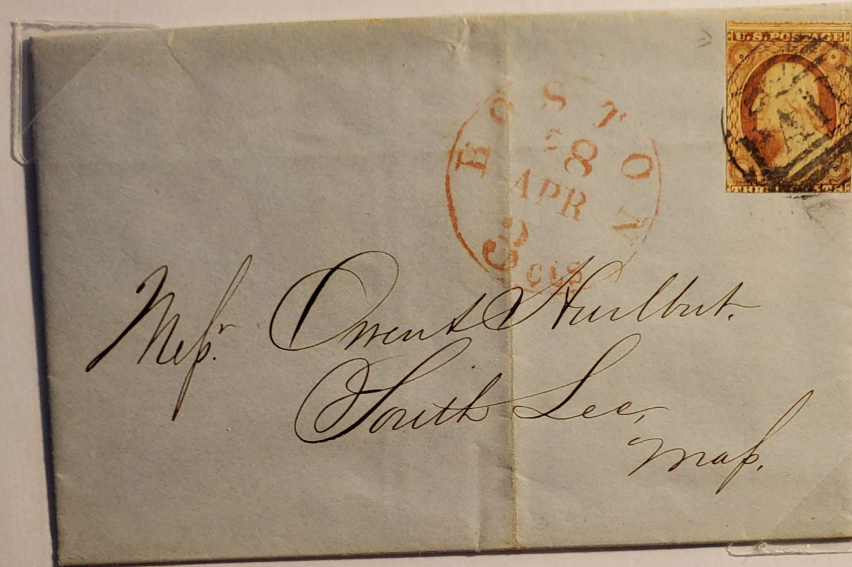 U.S. POSTAGE
PAID
THREE CENTS
BOSTON
28
APR
3 cts
Meſsr. Owen & Hurlbut.
South Lee,
Maſs.